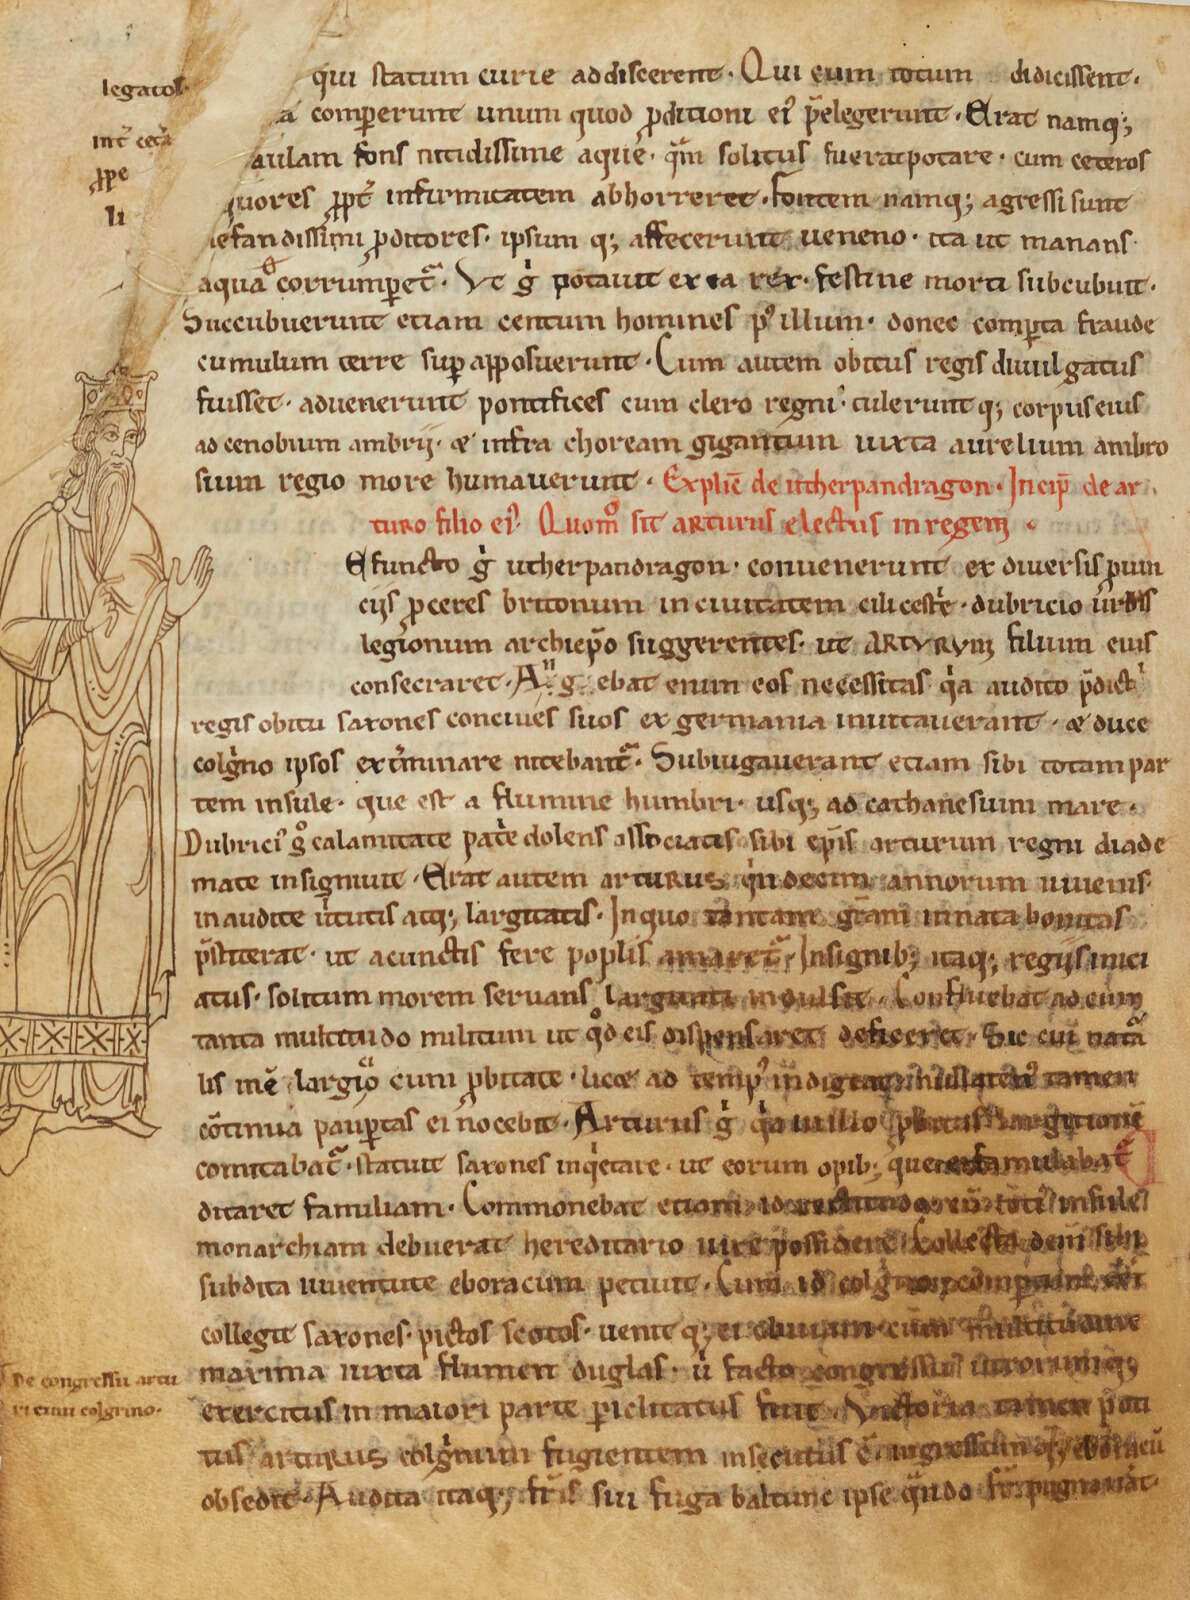 legatos
int̄ cet̄a
ꝓpe
li
qui statum curie addiscerent · Qui cum totum didicissent ·
a comperunt unum quod ꝓditioni ei᾽ p̄elegerunt · Erat namq;
aulam fons nitidissime aque · quā solitus fuerat potare · cum ceteros
uores ꝓpt̄ infirmitatem abhorreret · fontem namq; agressi sunt
nefandissimi ꝓditores · ipsum q; affecerunt ueneno · ita ut manans
aqua corrumꝑet᾽ · Ut g̊ potauit ex ea rex · festine morti subcubuit ·
Succubuerunt etiam centum homines p᾽ illum · donec comꝑta fraude
cumulum terre suꝑ apposuerunt · Cum autem obitus regis diuulgatus
fuisset · aduenerunt pontifices cum clero regni · tulerunt q; corpus eius
ad cenobium ambrii · & infra choream gigantum iuxta aurelium ambro
sium regio more humauerunt · Explic̄ de utherpandragon · Incip̄ de ar
turo filio ei᾽ Quom̊ sit arturus electus in regem ·
Efuncto g̊ utherpandragon · conuenerunt ex diuersis ꝓuin
ciis ꝓceres britonum in ciuitatem cilicestr̄e · dubricio urbis
legionum archiep̄o suggerentes · ut ARTURUM filium eius
consecraret · An g ebat enim eos necessitas q̇a audito p̄dicti
regis obitu saxones conciues suos ex germania inuitauerant · & duce
colg̍no ipsos ext̄minare nitebant᾽ · Subiugauerant etiam sibi totam par
tem insule · que est a flumine humbri · usq; ad cathanesium mare ·
Dubrici᾽ g̊ calamitate pat̍e dolens associatis sibi ep̄is arturum regni diade
mate insigniuit · Erat autem arturus quindecim annorum iuuenis
inaudite u̍tutis atq; largitatis · In quo tantam gr̄am innata bonitas
p̄stiterat · ut a cunctis fere poplis amaret᾽ · Insignib; itaq; regiis inici
atus · solitum morem seruans largitati indulsit · Confluebat ad eum
tanta multitudo militum ut q̊d eis dispensaret deficeret · Sic cui nata
lis inē largic̊ cum ꝓbitate · licet ad temp᾽ indigeat nullaten᾽ tamen
cōtinua pauꝑtas ei nocebit · Arturus g̊ q̇a in illo ꝓbitas largitionē
comitabat᾽ · statuit saxones inq̍etare · ut eorum opib; que ei famulabat᾽
ditaret familiam · Commonebat etiam id rectitudo · cū toti᾽ insule
monarchiam debuerat hereditario iure possidere Collecta dein̄ sibi
subdita iuuentute eboracum petiuit · Cum id colg̍no comꝑtum
collegit saxones · pictos scotos · uenit q; ei obuiam cum multitudine
maxima iuxta flumen duglas · u̍ facto congressu utrorumq;
exercitus in maiori parte ꝑiclitatus fuit · Victoria tamen poti
tus arturus colg̍num fugientem insecutus ē · ingressum q; eboracū
obsedit · Audita itaq; fr̄is sui fuga baldulf ipse
De congressu artu
ri cum colgrino ·